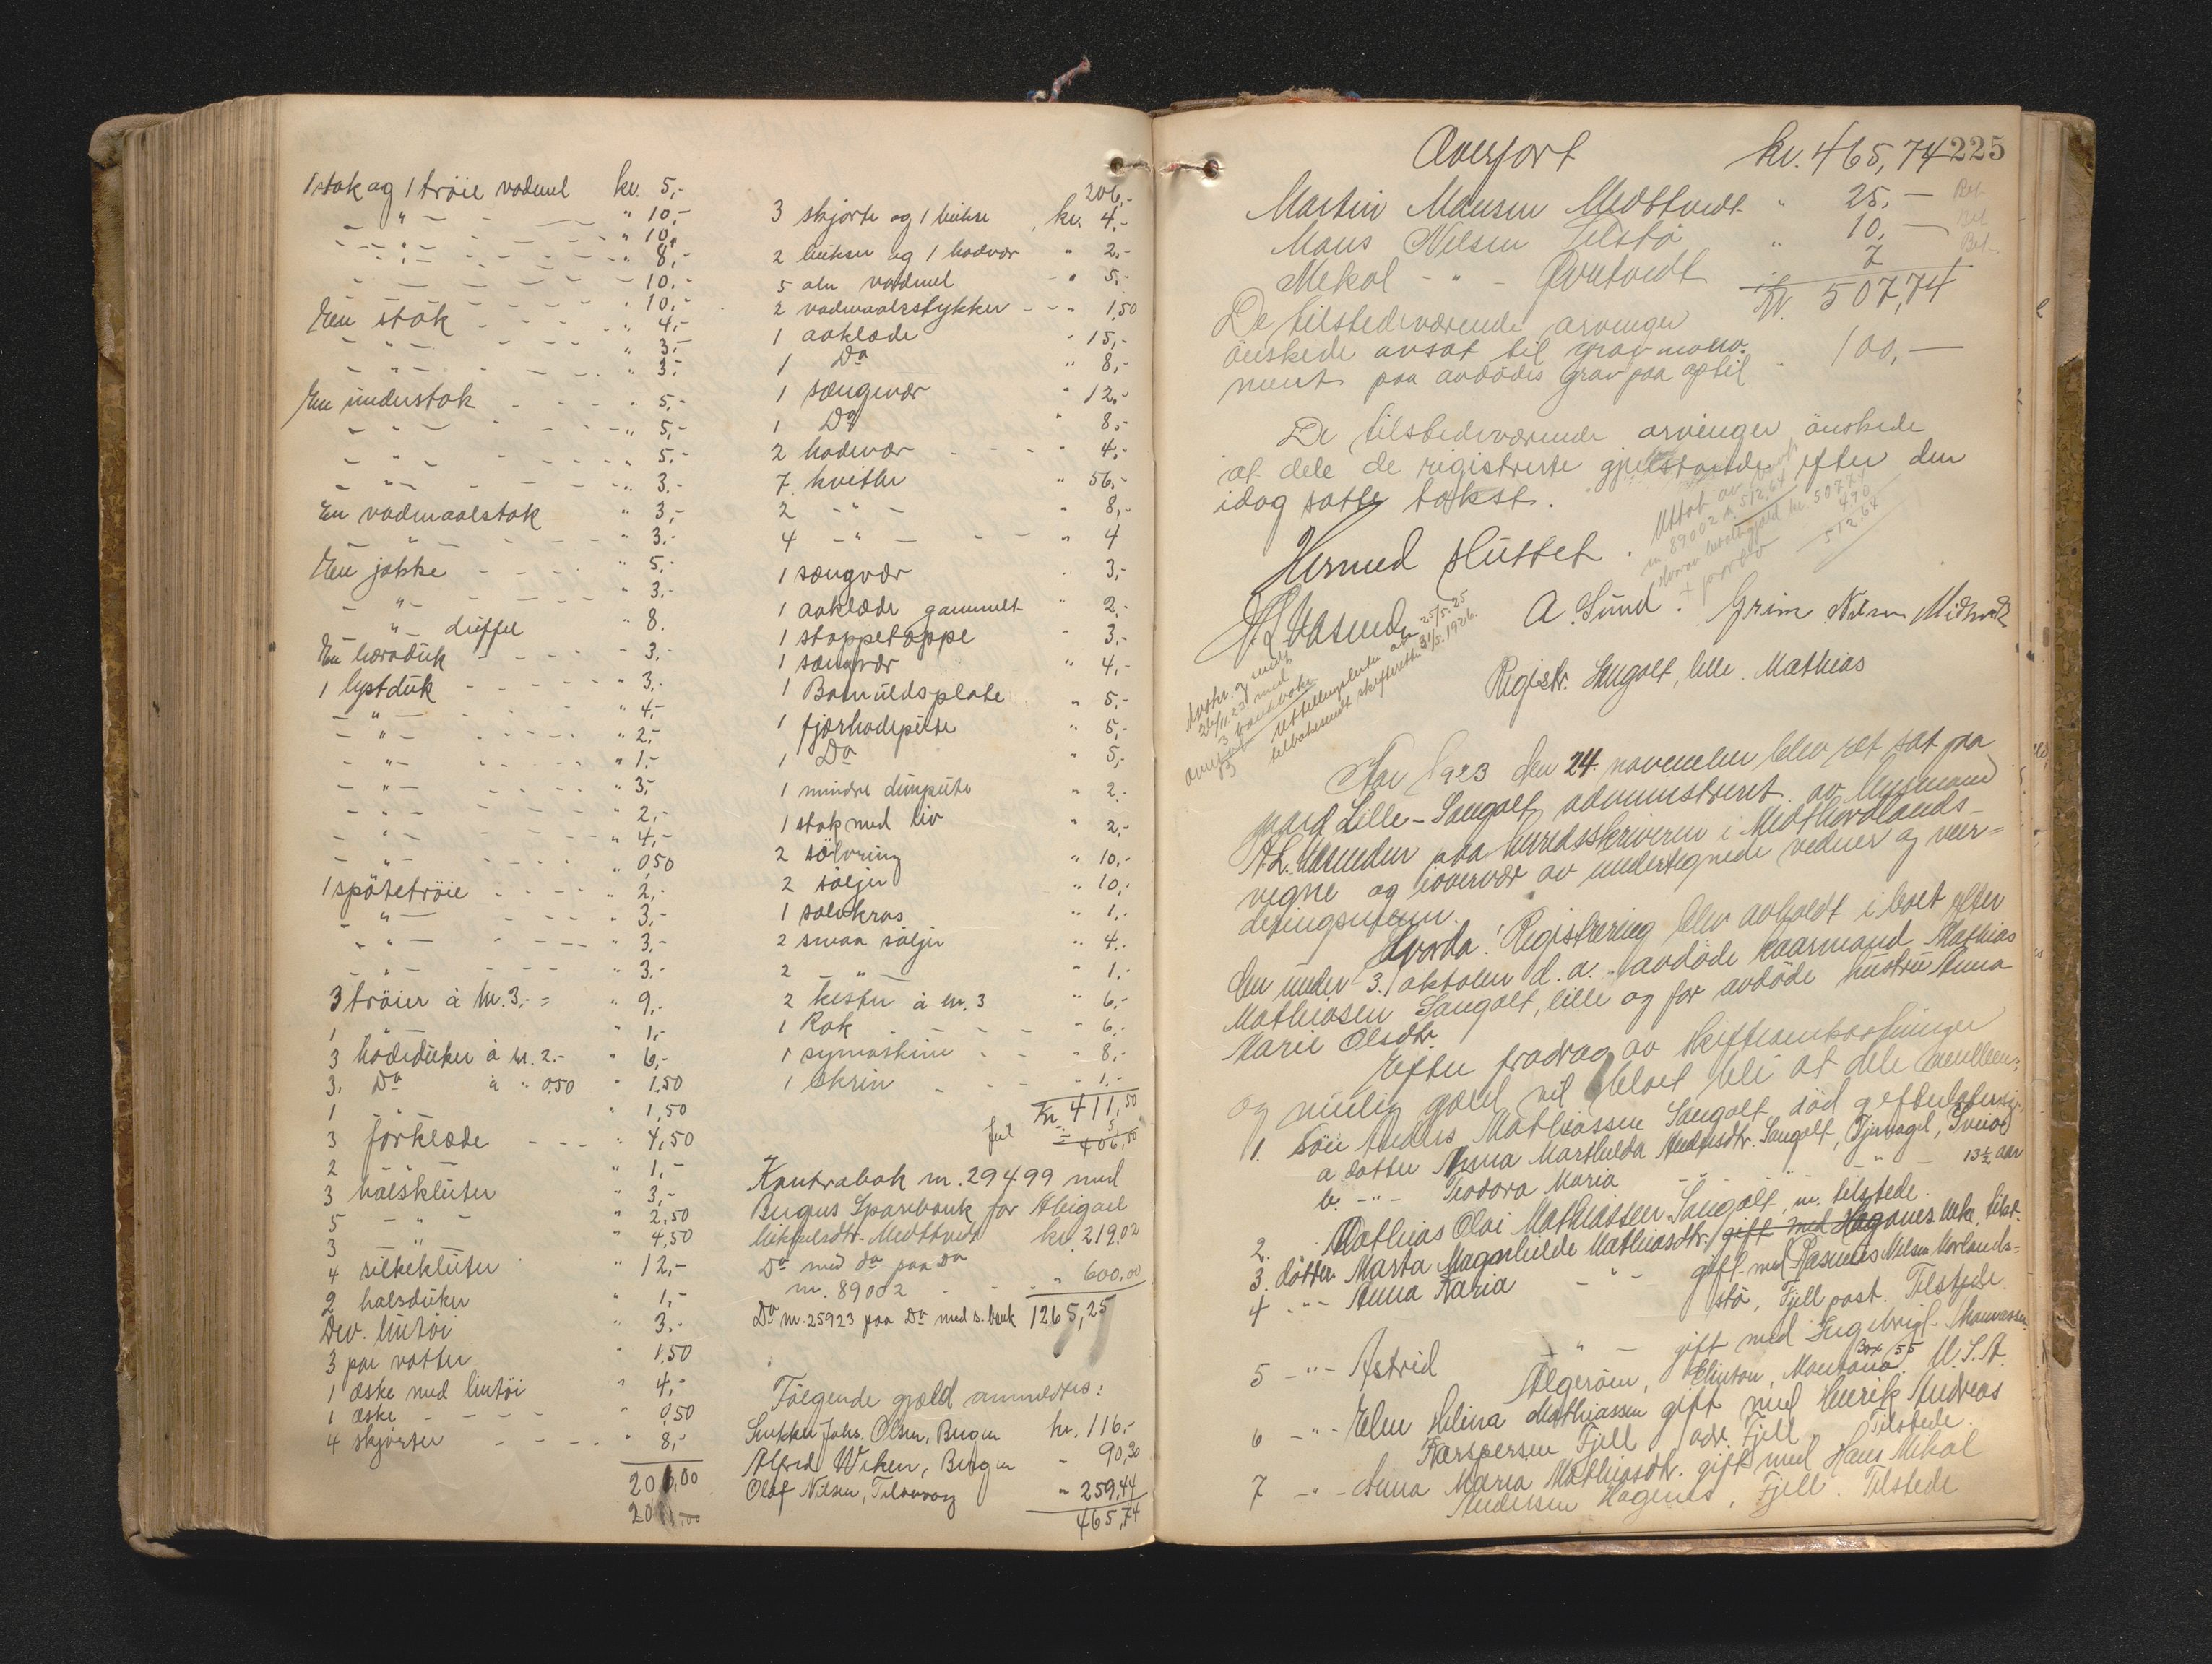 1 stak og 1 trøie vadmel kr. 5,-
- " - - - " 10,-
- " - - - " 10,-
- " - - - " 8,-
- - - - 10,-
- - - - " 10,-
En stak - - - " 4,-
- " - - - " 3,-
- " - - - " 3,-
En understak - - - " 5,-
- " - - - " 5,-
- " - - - " 5,-
- " - - - " 3,-
En vadmaalstak " 3,-
- " - - - " 3,-
En jakke - - - " 5,-
- " - - - " 3,-
- " - düffel " 8.
En - - - " 3,-
1 lystdük - - - " 3,-
- " - - - " 4,-
- " - - - " 2,-
- " - - - " 1,-
- " - - - " 3,-
- " - - - 2,-
- " - - - " 4,-
- " - - - " 0,50
1 spøtetrøie - - - " 2,-
- " - - - " 3,-
- " - - - " 3,-
- " - - - " 3,-
3 trøier à kr. 3,- = " 9,-
1 - " - " 1,-
3 hodedüker à kr. 2.- " 6,-
3. Do à " 0,50 " 1,50
1 - " - " 1,50
3 forklæde - - - " 4,50
2 - " 1,-
3 halsklüter " 3,-
5 - " - " 2,50
3 - " - " 4,50
4 silkeklüter " 12,-
2 halsdüker " 1,-
Div. lintøi " 3,-
3 par votter " 1,50
1 æske med lintøi " 4,-
1 æske - - - " 0,50
4 skjorter " 8,-
206,00
206,-
3 skjorte og 1 bukse, kr. 4,-
2 bukser og 1 hodvær " 2,-
5 alen vadmel - " 5,-
2 vadmaalsstykker - - " 1,50
1 aaklæde " 15,-
1 Do " 8,-
1 sængevær " 12,-
1 Do " 8,-
2 hodevær - - - " 4,-
7 kvitler " 56,-
2 - " - " 8,-
4 - " - - - " 4
1 sængvær " 3,-
1 aaklæde gammelt " 2,-
1 stoppetæppe " 3,-
1 sængvær " 4,-
1 Bomuldsplate " 5,-
1 fjærhodepute " 5,-
1 Do " 5,-
1 mindre dünpüte " 2,-
1 stak med liv " 2,-
2 sølvring " 10,-
2 søljer " 10,-
1 sølvkras " 1,-
2 smaa søljer " 4,-
2 - " - " 1,-
2 kister à kr. 3 " 6,-
1 Rok - - - " 6,-
1 symaskine - - " 8,-
1 Skrin - - - " 1,-
Kr. 411,50
feil 5
= 406,50
Kontrabok nr. 29499 med
Bergens Sparebank for Abigael
Mikkelsdtr. Midttveit kr. 219,02
Do med do paa Do
nr. 89002 - - " 600,00
Do nr. 25923 paa Do med s. bank 1265,25
Følgende gjæld anmeldtes:
Snekker Johs. Olsen, Bergen kr. 116,-
Alfred Wiken, Bergen - 90,30
Olaf Nilsen, Telavaag " 259,44
465,74
225
Overført kr. 465,74
Martin Monsen Midttveit " 25,- Bet.
Mons Nilsen Selstø " 10,- Bet.
Mikal - " - Øvretveit " 7 Bet.
Kr. 507,74
De tilstedeværende arvinger
ønskede avsat til gravmonu-
ment paa avdødes grav paa optil " 100,-
De tilstedeværende arvinger ønskede
at dele de registrerte gjenstande efter den
idag satte takst.
Uttat av
nr. 89002 kr. 512,64
kr. 507,74
4,90
512,64
Hermed sluttet.
A. Sund. Grim Nilsen Midtveit
25/5. 25
skifteretten 31/5. 1926.
24/11.23 med
3 bankbøker
Registr. Sangolt, lille. Mathias
Aar 1923 den 24. november blev ret sat paa
gaard Lille-Sangolt administreret av lensmand
paa herredsskriveren i Midthordlands
vegne og i overvær av undertegnede vidner og vur-
deringsmenn.
Hvorda: Registrering blev avholdt i boet efter
den under 3. oktober d. a. avdøde kaarmand Mathias
Mathiasen Sangolt, lille og før avdøde hustru Anna
Marie Olsdtr.
Efter fradrag av skifteomkostninger
og mulig gjæld vil boet bli at dele mellem:
1. Søn Anders Mathiassen Sangolt, død efterlatende
a. datter Anna Marthilda Andersdtr. Sangolt,
b. - " - Teodora Maria - " - - " - 13½ aar
2. Mathias Olai Mathiassen Sangolt, m. tilstede.
3. datter Marta Magnhilde Mathiasdtr. gift med Hagenes tilst.
4 - " - Anna Karia - " - gift med Rasmus Nilsen Morlands-
stø, Fjell post. Tilstede.
5 - " - Astrid - " - gift med Ingebrigt
Algerøen, Clinton, Montana. Box 55 U.S.A.
6 - " - Elen Helina Mathiassen gift med Henrik Andreas
Kaspersen Fjell, adr. Fjell. Tilstede.
7 - " - Anna Maria Mathiasdtr. gift med Hans Mikal
Andersen Hagenes, Fjell. Tilstede